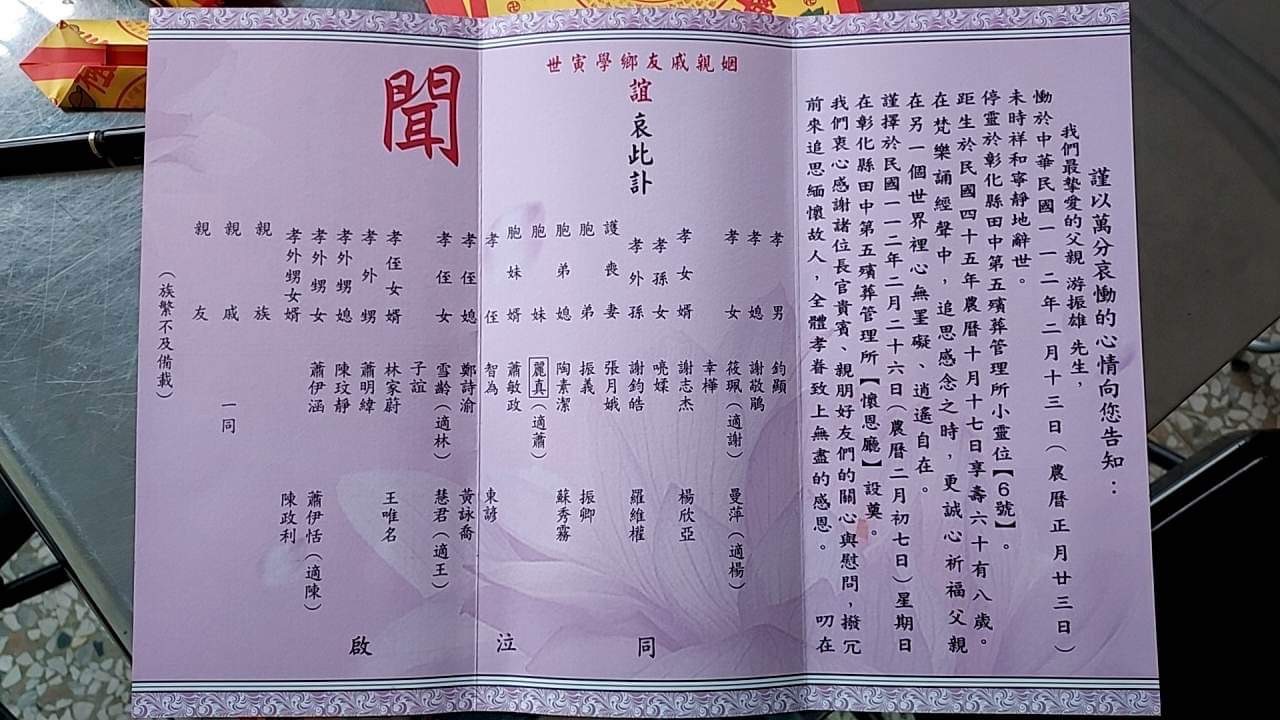 謹以萬分哀慟的心情向您告知：
我們最摯愛的父親 游振雄 先生，
慟於中華民國一一二年二月十三日（農曆正月廿三日）
未時祥和寧靜地辭世。
停靈於彰化縣田中第五殯葬管理所小靈位【6號】。
距生於民國四十五年農曆十月十七日享壽六十有八歲。
在梵樂誦經聲中，追思感念之時，更誠心祈福父親
在另一個世界裡心無罣礙、逍遙自在。
謹擇於民國一一二年二月二十六日（農曆二月初七日）星期日
在彰化縣田中第五殯葬管理所【懷恩廳】設奠。
我們衷心感謝諸位長官貴賓、親朋好友們的關心與慰問，撥冗
前來追思緬懷故人，全體孝眷致上無盡的感恩。 叨在
姻親戚友鄉學寅世
誼哀此訃
聞
孝男 鈞顯
孝媳 謝敬鵑
孝女 筱珮（適謝） 曼萍（適楊）
幸樺
孝女婿 謝志杰 楊欣亞
孝孫女 喨媃
孝外孫 謝鈞皓 羅維權
護喪妻 張月娥
胞弟 振義 振卿
胞弟媳 陶素潔 蘇秀霧
胞妹 麗真（適蕭）
胞妹婿 蕭敏政
孝侄 智為 東諺
孝侄媳 鄭詩渝 黃詠喬
孝侄女 雪齡（適林） 慧君（適王）
子誼
孝侄女婿 林家蔚 王唯名
孝外甥 蕭明緯
孝外甥媳 陳玟靜
孝外甥女 蕭伊涵 蕭伊恬（適陳）
孝外甥女婿 陳政利
親族
親戚 一同
親友
（族繁不及備載）
同泣啟